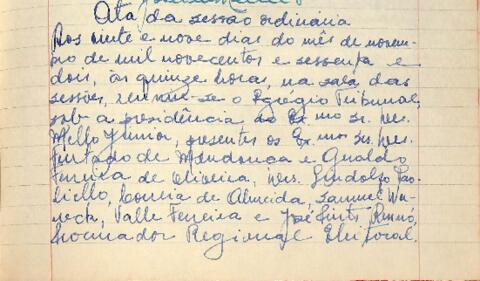 Ata da sessão ordinária
Aos vinte e nove dias do mês de novem-
bro de mil novecentos e sessenta e
dois, às quinze horas, na sala das
sessões, reuniu-se o Egrégio Tribunal,
sob a presidência do Exmo sr. Des.
Mello Junior, presentes os Exmos srs. Des.
Furtado de Mendonça e Gualdo
Ferreira de Oliveira, Drs. Lindolfo Pao-
liello, Correia de Almeida, Samuel We-
neck, Valle Ferreira e José
Procurador Regional Eleitoral.